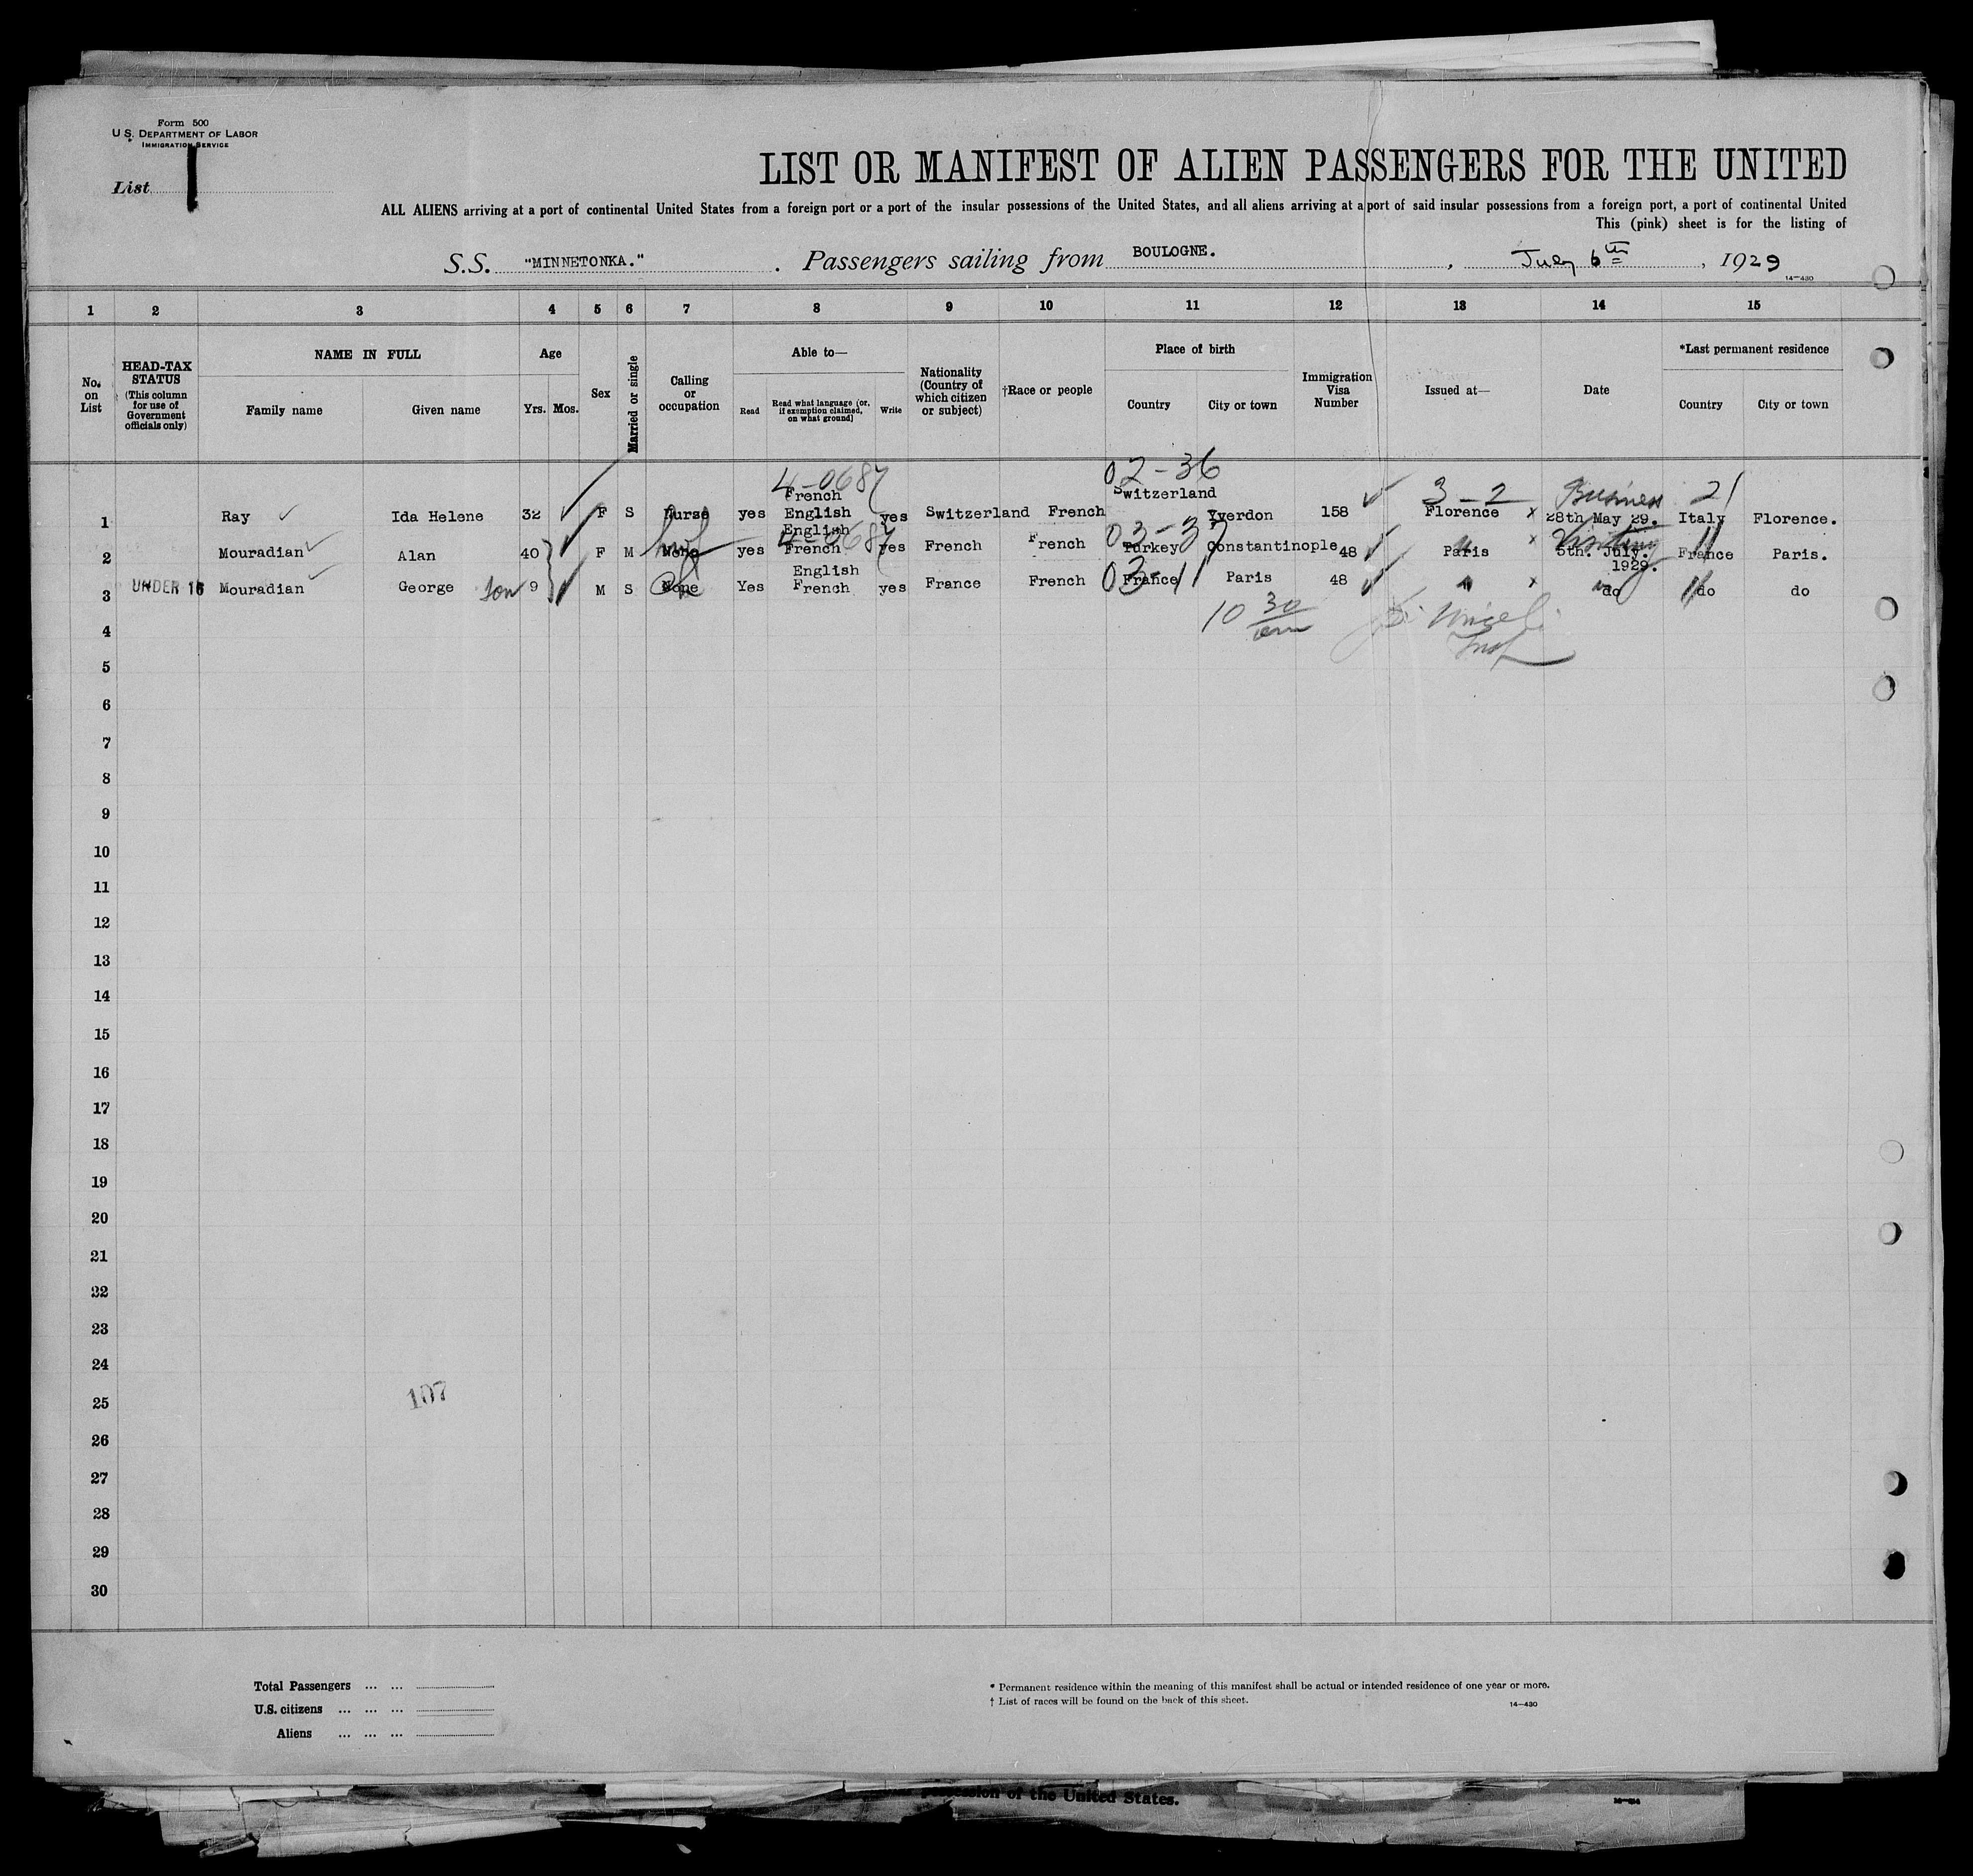 Form 500
U.S. DEPARTMENT OF LABOR
IMMIGRATION SERVICE
List 1
LIST OR MANIFEST OF ALIEN PASSENGERS FOR THE UNITED
ALL ALIENS arriving at a port of continental United States from a foreign port or a port of the insular possessions of the United States, and all aliens arriving at a port of said insular possessions from a foreign port, a port of continental United
This (pink) sheet is for the listing of
S.S. "MINNETONKA." . Passengers sailing from BOULOGNE. , July 6th , 1929
14—430
1 2 3 4 5 6 7 8 9 10 11 12 13 14 15
No. on List
HEAD-TAX STATUS
(This column for use of Government officials only)
NAME IN FULL
Family name Given name
Age
Yrs. Mos.
Sex
Married or single
Calling or occupation
Able to—
Read
Read what language [or, if exemption claimed, on what ground]
Write
Nationality (Country of which citizen or subject)
†Race or people
Place of birth
Country City or town
Immigration Visa Number
Issued at—
Date
*Last permanent residence
Country City or town
4-0687 02-36
French Switzerland 3-2 Business 21
1 Ray Ida Helene 32 F S Nurse yes English yes Switzerland French Yverdon 158 Florence x 28th May 29. Italy Florence.
English 4-0687 03-37 Visiting 11
2 Mouradian Alan 40 F M None yes French yes French French Turkey Constantinople 48 Paris x 5th. July. 1929. France Paris.
English 03-11
UNDER 16
3 Mouradian George son 9 M S None Yes French yes France French France Paris 48 " x do 11 do do
10 30
4
5
6
7
8
9
10
11
12
13
14
15
16
17
18
19
20
21
22
23
24
25
107
26
27
28
29
30
Total Passengers ... ...
U.S. citizens ... ... ...
Aliens ... ... ...
* Permanent residence within the meaning of this manifest shall be actual or intended residence of one year or more.
† List of races will be found on the back of this sheet.
14—430
possession of the United States.